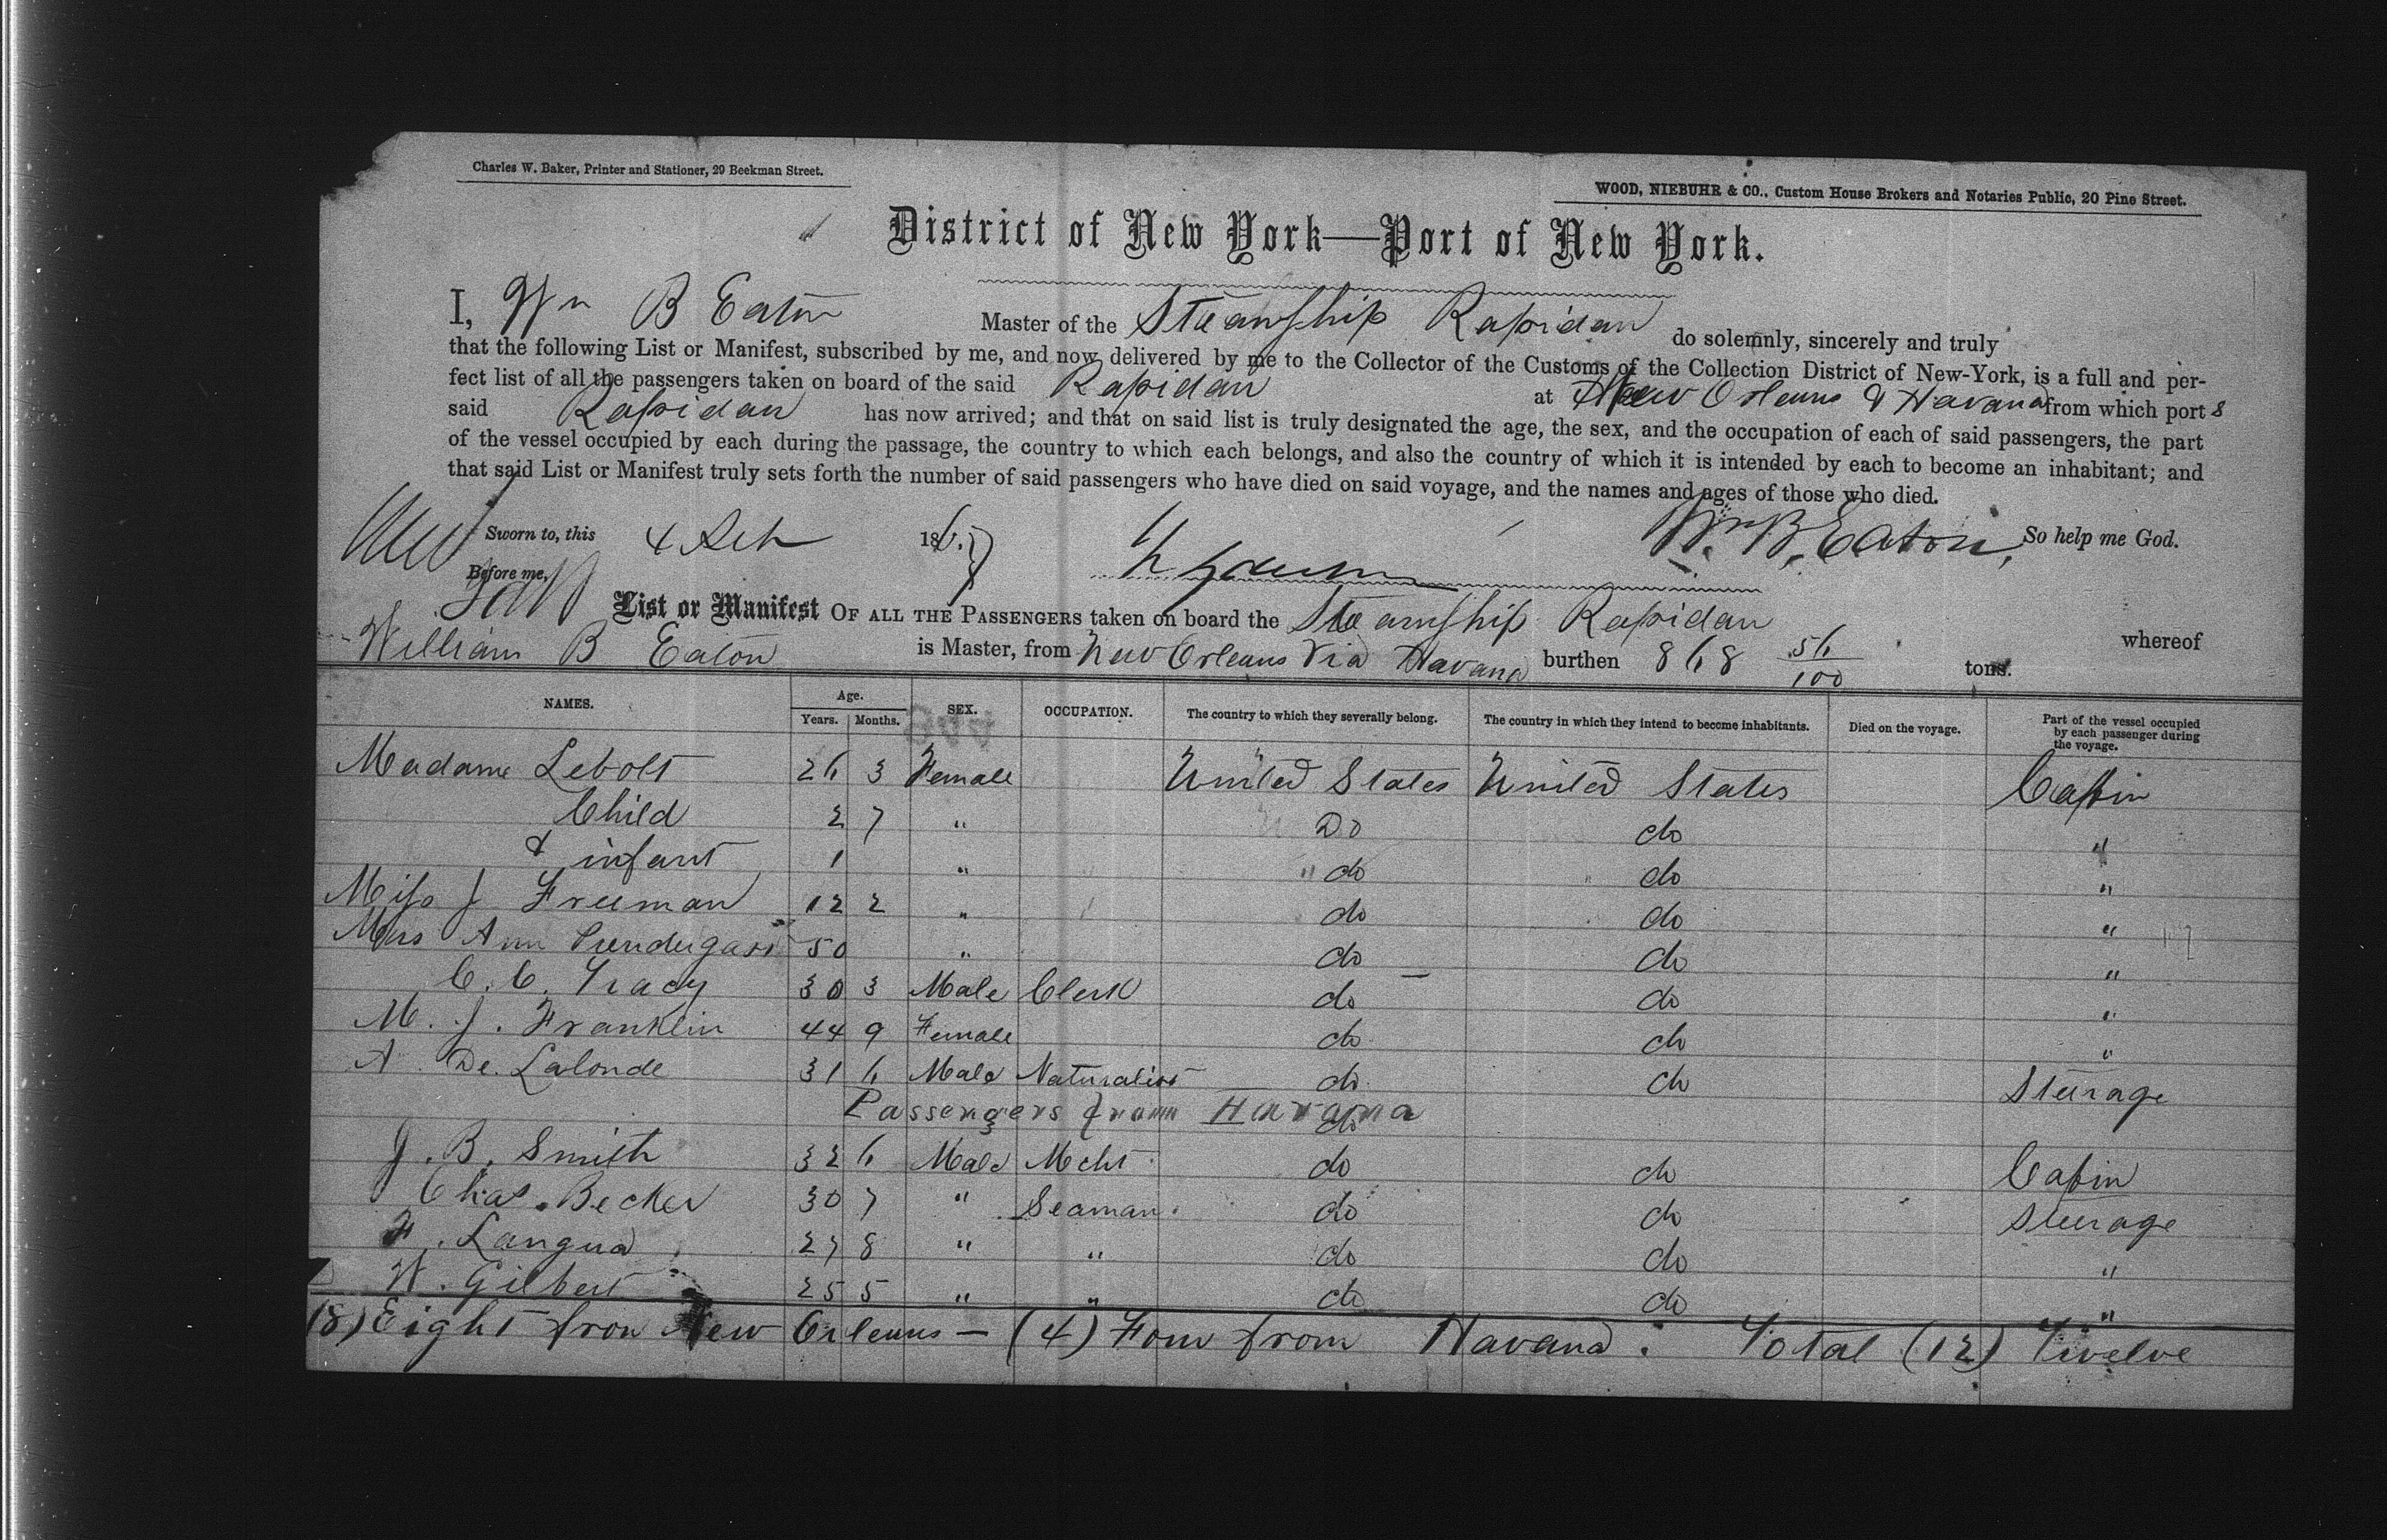 Charles W. Baker, Printer and Stationer, 29 Beekman Street.
WOOD, NIEBUHR & CO., Custom House Brokers and Notaries Public, 20 Pine Street.
District of New York—Port of New York.
I, Wm B Eaton Master of the Steamship Rapidan do solemnly, sincerely and truly
that the following List or Manifest, subscribed by me, and now delivered by me to the Collector of the Customs of the Collection District of New-York, is a full and per-
fect list of all the passengers taken on board of the said Rapidan at New Orleans & Havana from which port s
said Rapidan has now arrived; and that on said list is truly designated the age, the sex, and the occupation of each of said passengers, the part
of the vessel occupied by each during the passage, the country to which each belongs, and also the country of which it is intended by each to become an inhabitant; and
that said List or Manifest truly sets forth the number of said passengers who have died on said voyage, and the names and ages of those who died.
Sworn to, this 4 1867 Wm B. Eaton, So help me God.
Before me,
List or Manifest OF ALL THE PASSENGERS taken on board the Steamship Rapidan whereof
William B Eaton is Master, from New Orleans Via Havana burthen 868 56/100 tons.
NAMES. Age. Years. Months. SEX. OCCUPATION. The country to which they severally belong. The country in which they intend to become inhabitants. Died on the voyage. Part of the vessel occupied by each passenger during the voyage.
Madame Lebolt 26 3 Female United States United States Cabin
Child 2 7 " Do do "
& infant 1 " do do "
Miss J Freeman 12 2 " do do "
Mrs Ann Prendergast 50 " do do "
C. C. Tracy 30 3 Male Clerk do do "
M. J. Franklin 44 9 Female do do "
A De. Lalonde 31 6 Male Naturalist do do Steerage
Passengers from Havana do
J. B. Smith 32 6 Male Mcht do do Cabin
Chas. Becker 30 7 " Seaman. do do Steerage
F. Langua 27 8 " " do do "
W. Gilbert 25 5 " " do do "
(8) Eight from New Orleans — (4) Four from Havana. Total (12) Twelve